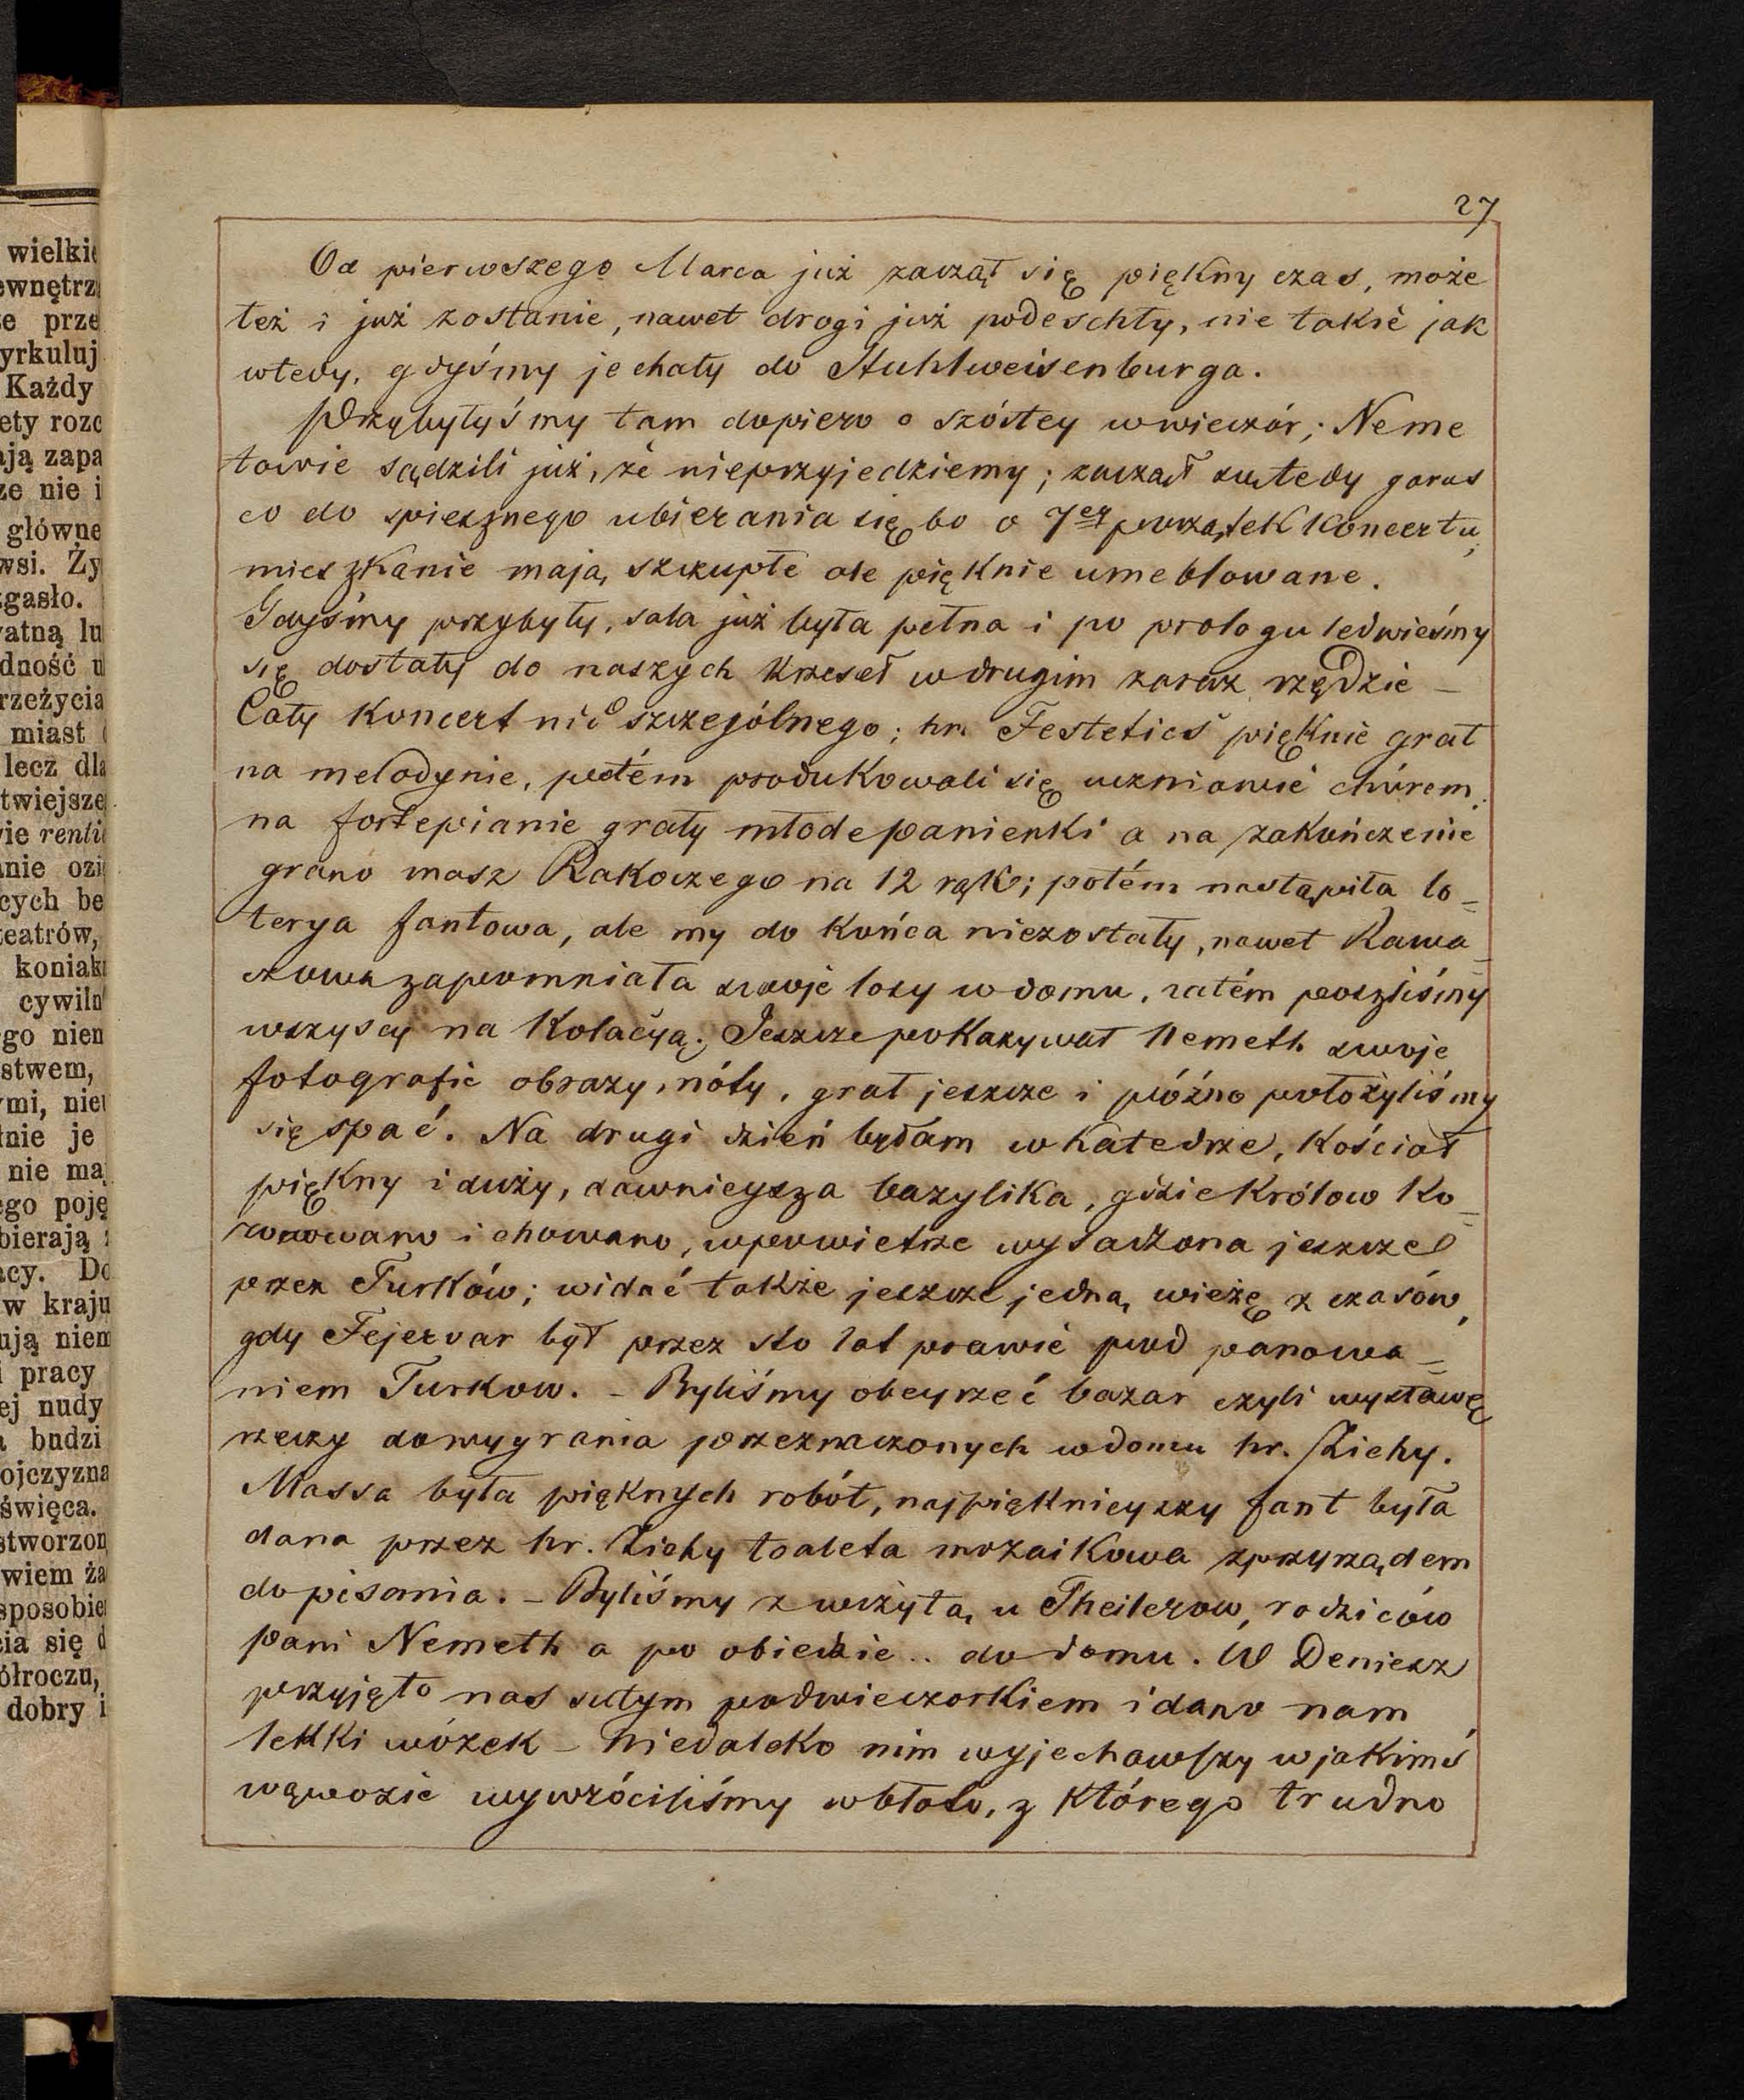 27
Od pierwszego Marca już zaczął się piękny czas, może
też i już zostanie, nawet drogi już podeschły, nie takie jak
wtedy, gdyśmy jechały do Stuhlweisenburga.
Przybyłyśmy tam dopiero o szóstey wwieczór; Neme
towie sądzili już, że nieprzyjedziemy; zaczął wtedy
co do spiesznego ubierania się bo o 7er początek koncertu,
mieszkanie mają szczupłe ale pięknie umeblowane.
Gdyśmy przybyły, sala już była pełna i po prologu ledwieśmy
się dostały do naszych krzeseł wdrugim zaraz rzędzie –
Cały koncert nic szczególnego; hr. Festetics pięknie grał
na melodynie, potém produkowali się uczniowie chórem;
na fortepianie grały młode panienki a na zakończenie
grano masz Rakoczego na 12 rąk; potém nastąpiła lo=
terya fantowa, ale my do końca niezostały, nawet Kawa=
czowa zapomniała swoje losy wdomu, zatém poszliśmy
wszyscy na kolacyą; Jeszcze pokazywał Nemeth swoje
fotografie obrazy, nóty, grał jeszcze i późno położyliśmy
się spać. Na drugi dzień byłam wkatedrze, kościoł
piękny i duży, dawnieysza bazylika, gdzie królow ko=
ronowano i chowano, wpowietrze wysadzona jeszcze
przez Turków; widać także jeszcze jedną wieżę z czasów,
gdy Fejervar był przez sto lat prawie pod panowa=
niem Turkow. – Byliśmy obeyrzeć bazar czyli wystawę
rzeczy dowygrania przeznaczonych wdomu hr. Zichy.
Massa była pięknych robót, najpięknieyszy fant była
dana przez hr. Zichy toaleta mozaikowa zprzyrządem
do pisania. – Byliśmy z wizytą u Theilerow, rodziców
pani Nemeth a po obiedzie .. do domu. W Deniesz
przyjęto nas sutym podwieczorkiem i dano nam
lekki wózek – niedaleko nim wyjechawszy wjakimś
wąwozie wywróciliśmy wbłoto, z którego trudno